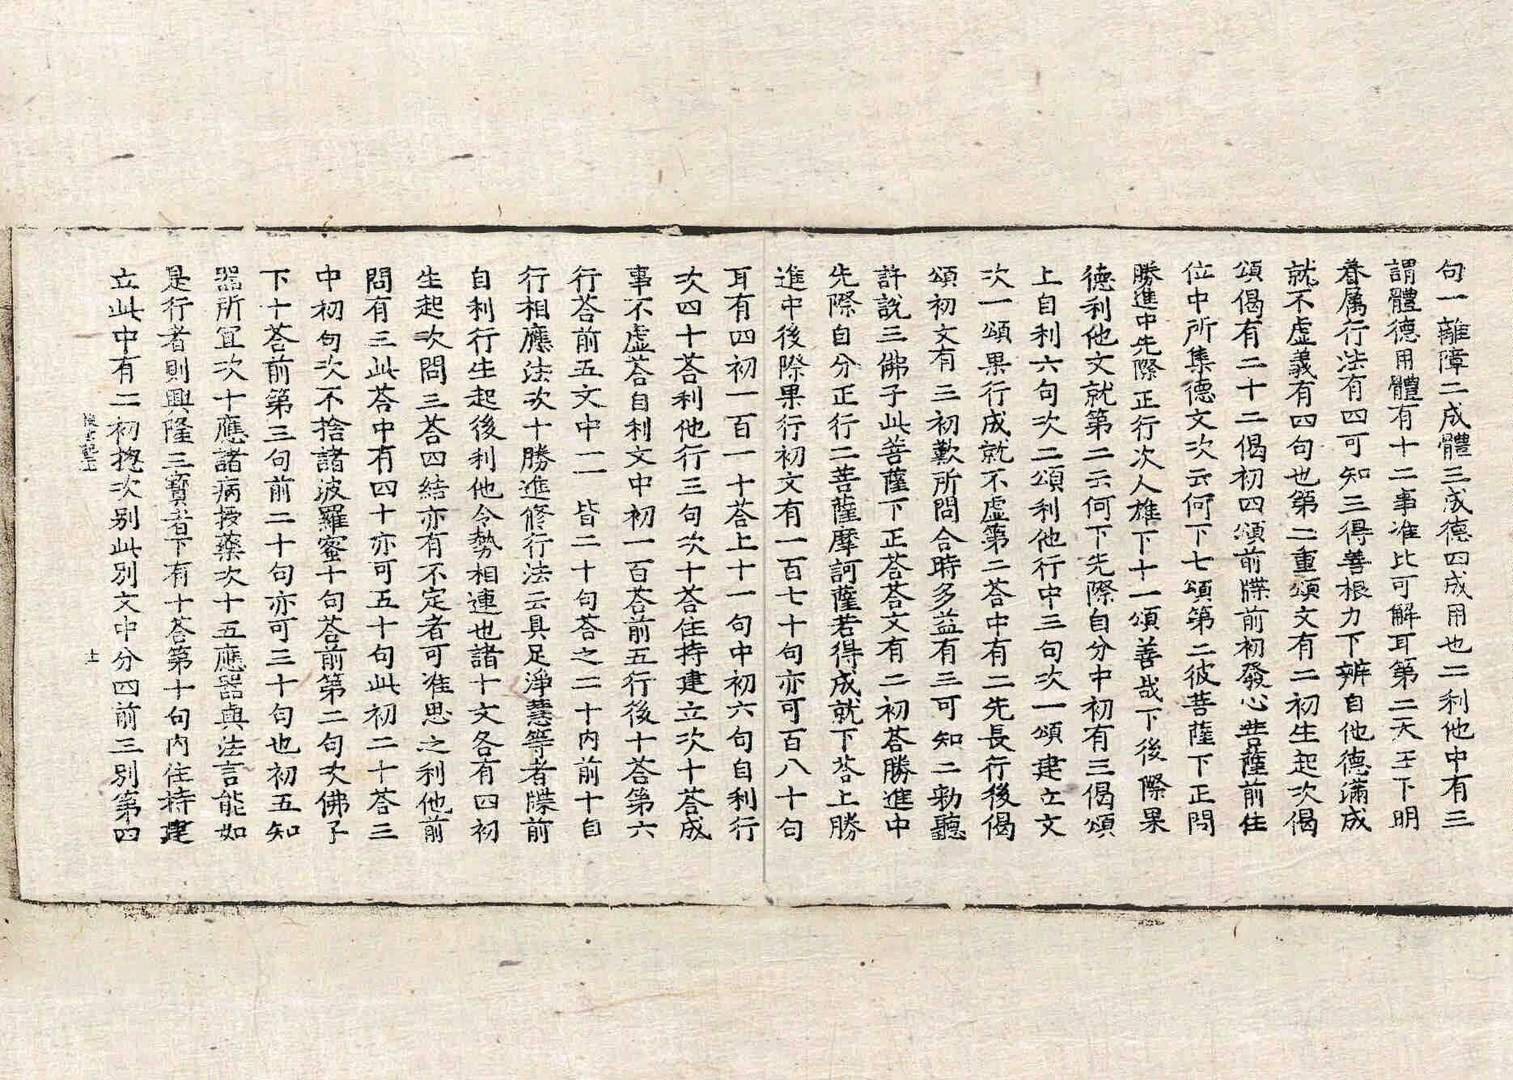 句一離障二成體三成德四成用也二利他中有三
謂體德用體有十二事准比可解耳第二天王下明
眷属行法有四可知三得善根力下辨自他德滿成
就不虛義有四句也第二重頌文有二初生起次偈
頌偈有二十二偈初四頌前牒前初發心菩薩前住
位中所集德文次云何下七頌第二彼菩薩下正問
勝進中先際正行次人雄下十一頌善哉下後際果
德利他文就第二云何下先際自分中初有三偈頌
上自利六句次二頌利他行中三句次一頌建立文
次一頌果行成就不虛第二荅中有二先長行後偈
頌初文有三初歎所問合時多益有三可知二勑聽
許說三佛子此菩薩下正荅荅文有二初荅勝進中
先際自分正行二菩薩摩訶薩若得成就下荅上勝
進中後際果行初文有一百七十句亦可百八十句
耳有四初一百一十荅上十一句中初六句自利行
次四十荅利他行三句次十荅住持建立次十荅成
事不虛荅自利文中初一百荅前五行後十荅第六
行荅前五文中一一皆二十句荅之二十內前十自
行相應法次十勝進修行法云具足淨慧等者牒前
自利行生起後利他令勢相連也諸十文各有四初
生起次問三荅四結亦有不定者可准思之利他前
問有三此荅中有四十亦可五十句此初二十荅三
中初句次不捨諸波羅蜜十句荅前第二句次佛子
下十荅前第三句前二十句亦可三十句也初五知
器所宜次十應諸病授藥次十五應器與法言能如
是行者則興隆三寶者下有十荅第十句內住持建
立此中有二初揔次别此别文中分四前三别第四